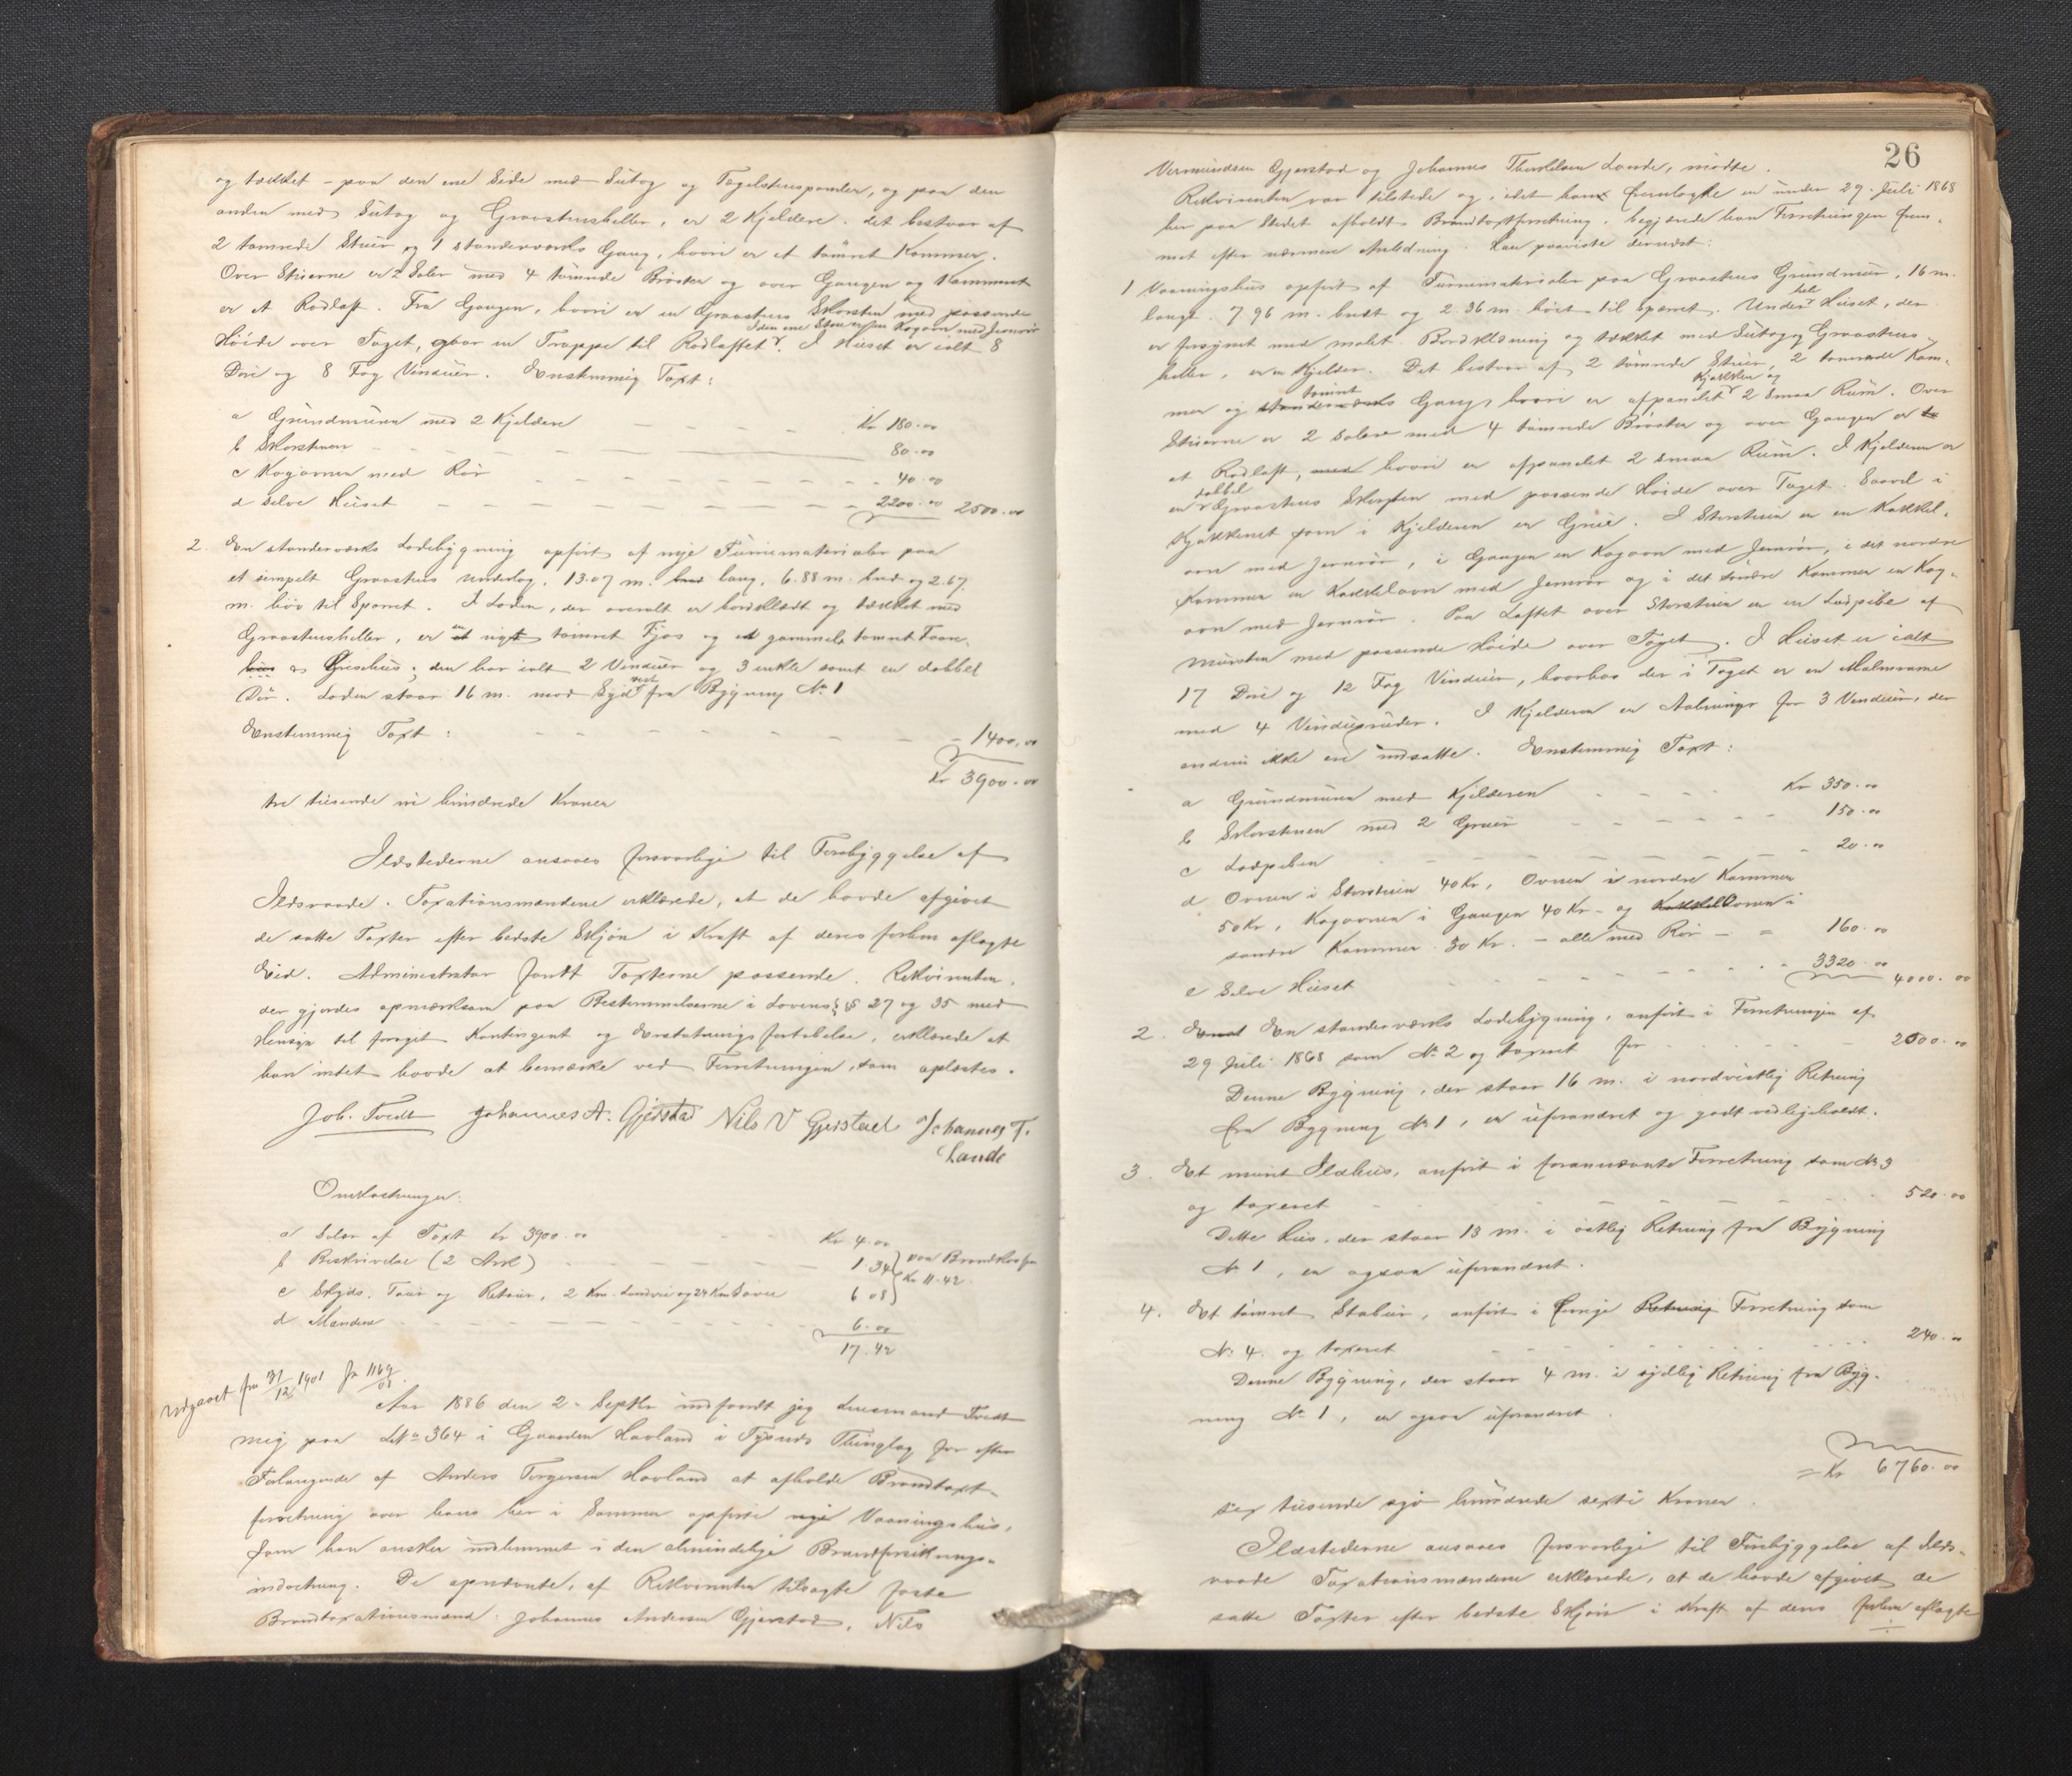 og tækket - paa den ene Side med Sutag og Tegelstenspander, og paa den
anden med Sutag og Graastensheller, er 2 Kjeldere. det bestaar af
2 tømrede Stuer og 1 standerværks Gang, hvori er et tømret Kammer.
Over Stuerne er 2 Saler med 4 tømrede Brøster og over Gangen og Kammeret
er et Rødloft. Fra Gangen, hvori er en Graastens Skorsten med passende
I den ene Stue er en Kogovn med Jernrør
Høide over Taget, gaar en Trappe til Rødloftet. I Huset er ialt 8
Døre og 8 Fag Vinduer. Enstemmig Taxt:
a Grundmuren med 2 Kjeldere Kr 180.00
b Skorstenen 80.00
c Kogovnen med Rør 40.00
d selve Huset 2200.00 2500.00
2. En standerværks Ladebygning opført af nye Furumaterialer paa
et simpelt Graastens Underlag, 13.07 m. lang, 6.88 m. bred og 2.67
m. høi til Sparret. I Laden, der overalt er bordklædt og tækket med
Graastensheller, er et nyt tømret Fjøs og et gammelt tømret Faare
hus og Grisehus; den har ialt 2 Vinduer og 3 enkle samt en dobbel
Dør. Laden staar 16 m. mod Sydvest fra Bygning No 1
Enstemmig Taxt: 1400.00
Kr 3900.00
tre tusende ni hundrede Kroner
Ildstederne ansaaes forsvarlige til Forebyggelse af
Ildsvaade. Taxationsmændene erklærede, at de havde afgivet
de satte Taxter efter bedste Skjøn i Kraft af deres forhen aflagte
Eid. Administrator fandt Taxterne passende. Rekvirenten,
der gjordes opmærksom paa Bestemmelserne i Lovens §§ 27 og 35 med
Hensyn til forøget Kontingent og Erstatnings fortabelse, erklærede at
han intet havde at bemærke ved Forretningen, som oplæstes.
Joh. Tvedt Johannes A. Gjerstad Nils V Gjerstad Johannes T.
Lande
Omkostninger:
a Salær af Taxt Kr 3900.00 Kr 4.00
b Beskrivelse (2 Ark) 1 34 paa Brandkassen
c Skyds. Tour og Retour, 2 Km. Landvei og 24 Km Søvei 6 08 Kr 11.42
d Mændene 6.00
17.42
Udgaaet fra 31/12 1901 Jr 1169/01.
Aar 1886 den 2. Septbr indfandt jeg Lensmand Tvedt
mig paa LNo 364 i Gaarden Havland i Thinglag for efter
Forlangende af Anders Torgersen Havland at afholde Brandtaxt-
forretning over hans her i Sommer opførte nye Vaaningshus,
som han ønsker indlemmet i den almindelige Brandforsikrings-
indretning. De opnævnte, af Rekvirenten tilsagte faste
Brandtaxationsmænd: Johannes Andersen Gjerstad, Nils
26
Vermundsen Gjerstad og Johannes Thorkilsen Lande, mødte.
Rekvirenten var tilstede og, idet han fremlagde en under 29. Juli 1868
her paa Stedet afholdt Brandtaxtforretning, begjærede han Forretningen frem-
met efter nærmere Anledning. Han paaviste dernæst:
1 Vaaningshus opført af Furumaterialer paa Graastens Grundmur, 16 m.
langt, 7.96 m. bredt og 2.36 m. høit til Sparret. Under hele Huset, der
er forsynet med malet Bordklædning og tækket med Sutag og Graastens-
heller, er en Kjelder. Det bestaar af 2 tømrede Stuer, 2 tømrede Kam-
Kjøkken og
mer og standerværks tømret Gang, hvori er afpanelet 2 smaa Rum. Over
Stuerne er 2 Salere med 4 tømrede Brøster og over Gangen er
et Rødloft, med hvori er afpanelet 2 smaa Rum. I Kjelderen er
dobbel
en Graastens Skorsten med passende Høide over Taget. Saavel i
Kjøkkenet som i Kjelderen er Grue. I Storstuen er en Kakkel-
ovn med Jernrør, i Gangen en Kogovn med Jernrør, i det nordre
Kammer en Kakkelovn med Jernrør og i det søndre Kammer en Kog-
ovn med Jernrør. Paa Loftet over Storstuen er en Ludpibe af
Mursten med passende Høide over Taget. I Huset er ialt
17 Døre og 12 Fag Vinduer, hvorhos der i Taget er en Malmramme
med 4 Vinduesruder. I Kjelderen er Aabninger for 3 Vinduer, der
endnu ikke ere indsatte. Enstemmig Taxt:
a Grundmuren med Kjelderen Kr 350.00
b Skorstenen med 2 Gruer 150.00
c Ludpiben 20.00
d Ovnen i Storstuen 40 Kr, Ovnen i nordre Kammer
50 Kr, Kogovnen i Gangen 40 Kr - og Kakkel Ovnen i
søndre Kammer 30 Kr. - alle med Rør 160.00
e Selve Huset 3320.00 4000.00
2. En standerværks Ladebygning, anført i Forretningen af
29 Juli 1868 som No 2 og taxeret for 2000.00
Denne Bygning, der staar 16 m. i nordvestlig Retning
fra Bygning No 1, er uforandret og godt vedligeholdt.
3. Et muret Ildhus, anført i forannævnte Forretning som No 3
og taxeret 520.00
Dette Hus, der staar 13 m. i østlig Retning fra Bygning
No 1, er ogsaa uforandret.
4. Et tømret Stabur, anført i forrige Retning Forretning som
No 4. og taxeret 240.00
Denne Bygning, der staar 4 m. i sydlig Retning fra Byg-
ning No 1, er ogsaa uforandret.
= Kr 6760.00
sex tusende syv hundrede sexti Kroner.
Ildstederne ansaaes forsvarlige til Forebyggelse af Ilds-
vaade Taxationsmændene erklærede, at de havde afgivet de
satte Taxter efter bedste Skjøn i Kraft af deres forhen aflagte